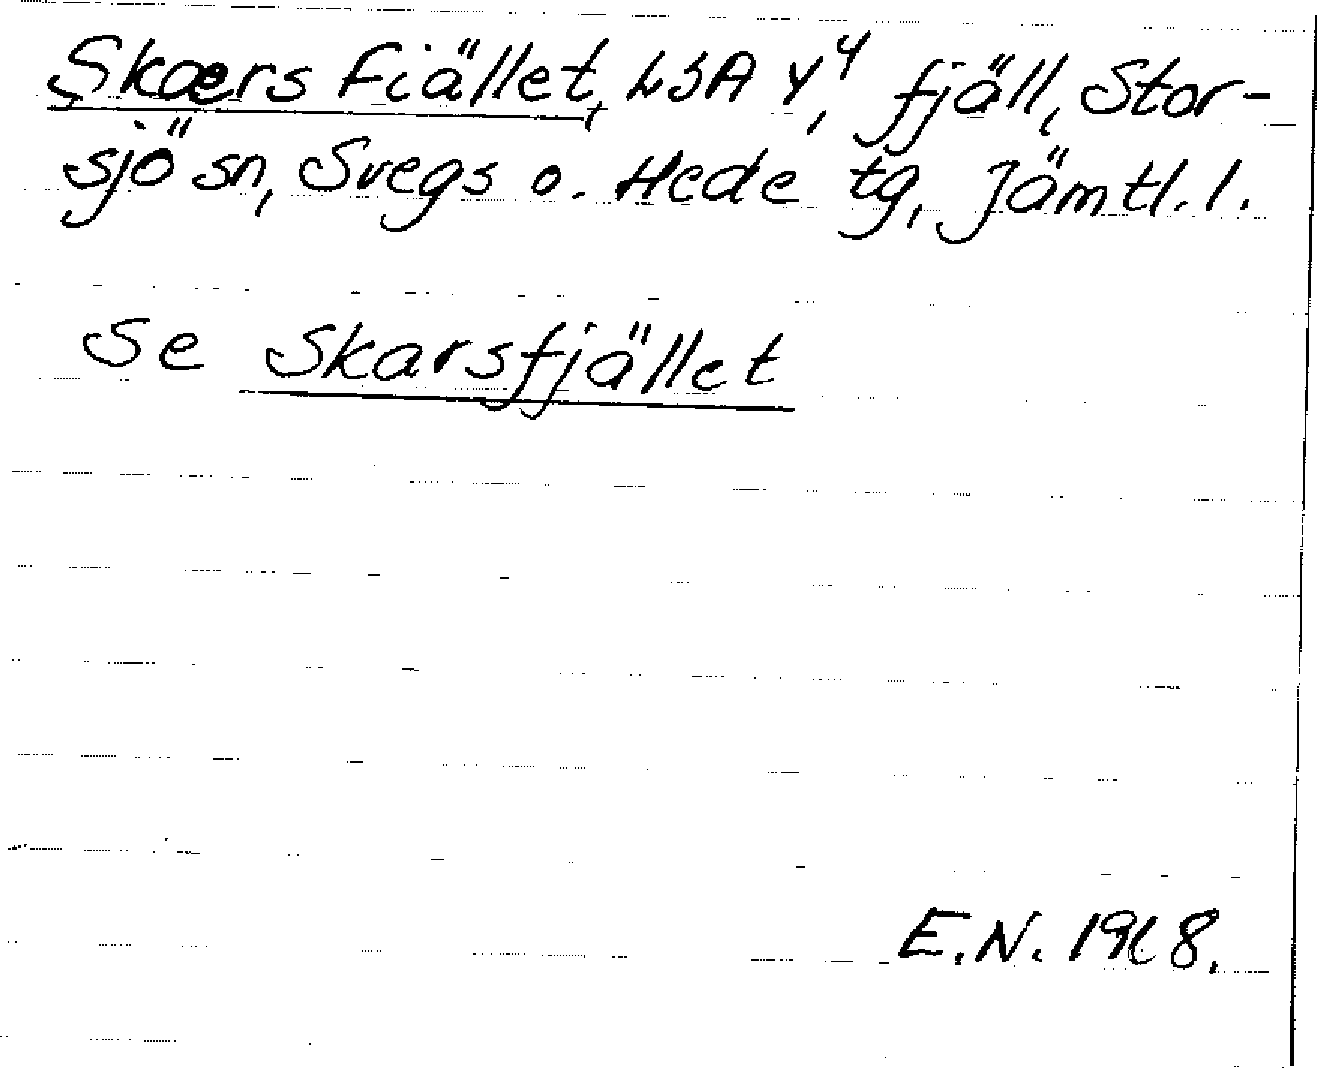 Skærs Fiället, LSA Y⁴, fjäll, Stor-
sjö sn, Svegs o. Hede tg, Jämtl. l.
Se Skarsfjället
E.N. 1968.